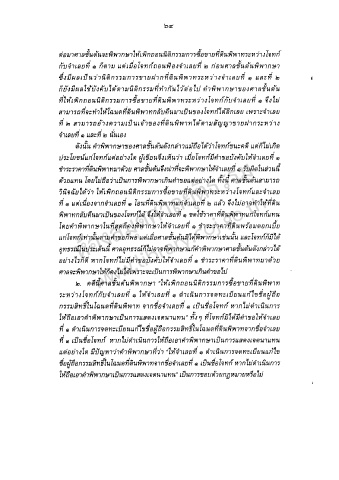 ๒๙
ต่อมาศาลชั้นต้นจะพิพากษาให้เพิกถอนนิติกรรมการซื้อขายที่ดินพิพาทระหว่างโจทก์
กับจำเลยที่ ๑ ก็ตาม แต่เมื่อโจทก์ถอนฟ้องจำเลยที่ ๒ ก่อนศาลชั้นต้นพิพากษา
ซึ่งมีผลเป็นว่านิติกรรมการขายฝากที่ดินพิพาทระหว่างจำเลยที่ ๑ และที่ ๒
ก็ยังมีผลใช้บังคับได้ตามนิติกรรมที่ทำกันไว้ต่อไป คำพิพากษาของศาลชั้นต้น
ที่ให้เพิกถอนนิติกรรมการซื้อขายที่ดินพิพาทระหว่างโจทก์กับจำเลยที่ ๑ จึงไม่
สามารถที่จะทำให้โฉนดที่ดินพิพาทกลับคืนมาเป็นของโจทก์ได้อีกเลย เพราะจำเลย
ที่ ๒ สามารถอ้างความเป็นเจ้าของที่ดินพิพาทได้ตามสัญญาขายฝากระหว่าง
จำเลยที่ ๑ และที่ ๒ นั่นเอง
ดังนั้น คำพิพากษาของศาลชั้นต้นดังกล่าวแม้ถือได้ว่าโจทก์ชนะคดี แต่ก็ไม่เกิด
ประโยชน์แก่โจทก์แต่อย่างใด ผู้เขียนจึงเห็นว่า เมื่อโจทก์มีคำขอบังคับให้จำเลยที่ ๑
ชำระราคาที่ดินพิพาทมาด้วย ศาลชั้นต้นจึงน่าที่จะพิพากษาให้จำเลยที่ ๑ รับผิดในส่วนนี้
ด้วยแทน โดยไม่ถือว่าเป็นการพิพากษาเกินคำขอแต่อย่างใด ทั้งนี้ ศาลชั้นต้นสามารถ
วินิจฉัยได้ว่า ให้เพิกถอนนิติกรรมการซื้อขายที่ดินพิพาทระหว่างโจทก์และจำเลยที่
๑ แต่เนื่องจากจำเลยที่ ๑ โอนที่ดินพิพาทแก่จำเลยที่ ๒ แล้ว จึงไม่อาจทำให้ที่ดิน
พิพาทกลับคืนมาเป็นของโจทก์ได้ จึงให้จำเลยที่ ๑ ชดใช้ราคาที่ดินพิพาทแก่โจทก์แทน
โดยคำพิพากษาในที่สุดก็คงพิพากษาให้จำเลยที่ ๑ ชำระราคาที่ดินพร้อมดอกเบี้ย
แก่โจทก์เท่านั้นตามคำขอก็พอ แต่เมื่อศาลชั้นต้นมิได้พิพากษาเช่นนั้นและโจทก์มิได้
อุทธรณ์ในประเด็นนี้ ศาลอุทธรณ์ก็ไม่อาจพิพากษาแก้คำพิพากษาศาลชั้นต้นดังกล่าวได้
อย่างไรก็ดี หากโจทก์ไม่มีคำขอบังคับให้จำเลยที่ ๑ ชำระราคาที่ดินพิพาทมาด้วย
ศาลจะพิพากษาให้ก็คงไม่ได้เพราะจะเป็นการพิพากษาเกินคำขอไป
๒. คดีนี้ศาลชั้นต้นพิพากษา "ให้เพิกถอนนิติกรรมการซื้อขายที่ดินพิพาท
ระหว่างโจทก์กับจำเลยที่ ๑ ให้จำเลยที่ ๑ ดำเนินการจดทะเบียนแก้ไขชื่อผู้ถือ
กรรมสิทธิ์ในโฉนดที่ดินพิพาท จากชื่อจำเลยที่ ๑ เป็นชื่อโจทก์ หากไม่ดำเนินการ
ให้ถือเอาคำพิพากษาเป็นการแสดงเจตนาแทน" ทั้งๆ ที่โจทก์มิได้มีคำขอให้จำเลย
ที่ ๑ ดำเนินการจดทะเบียนแก้ไขชื่อผู้ถือกรรมสิทธิ์ในโฉนดที่ดินพิพาทจากชื่อจำเลย
ที่ ๑ เป็นชื่อโจทก์ หากไม่ดำเนินการให้ถือเอาคำพิพากษาเป็นการแสดงเจตนาแทน
แต่อย่างใด มีปัญหาว่าคำพิพากษาที่ว่า "ให้จำเลยที่ ๑ ดำเนินการจดทะเบียนแก้ไข
ชื่อผู้ถือกรรมสิทธิ์ในโฉนดที่ดินพิพาทจากชื่อจำเลยที่ ๑ เป็นชื่อโจทก์ หากไม่ดำเนินการ
ให้ถือเอาคำพิพากษาเป็นการแสดงเจตนาแทน" เป็นการชอบด้วยกฎหมายหรือไม่